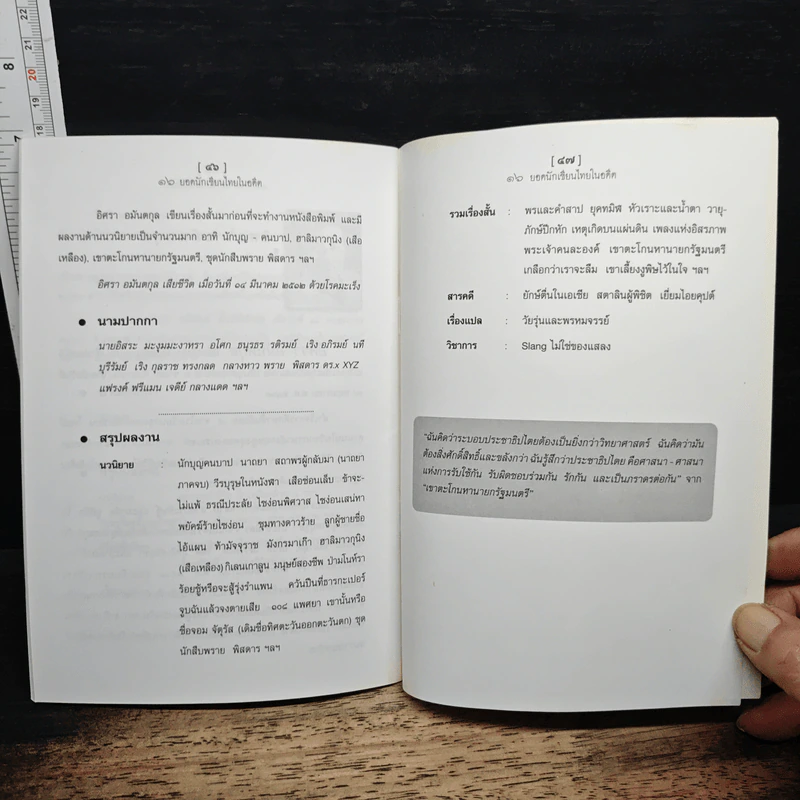 [ ๔๖ ]
๑๖ ยอดนักเขียนไทยในอดีต
อิศรา อมันตกุล เขียนเรื่องสั้นมาก่อนที่จะทำงานหนังสือพิมพ์ และมี
ผลงานด้านนวนิยายเป็นจำนวนมาก อาทิ นักบุญ - คนบาป, ฮาลิมาวกุนิง (เสือ
เหลือง), เขาตะโกนหานายกรัฐมนตรี, ชุดนักสืบพราย พิสดาร ฯลฯ
อิศรา อมันตกุล เสียชีวิต เมื่อวันที่ ๑๔ มีนาคม ๒๕๑๒ ด้วยโรคมะเร็ง
● นามปากกา
นายอิสระ มะงุมมะงาหรา อโศก ธนุรธร รติรมย์ เริง อภิรมย์ นที
บุรีรัมย์ เริง กุลราช ทรงกลด กลางหาว พราย พิสดาร ดร.x XYZ
แฟรงค์ ฟรีแมน เจดีย์ กลางแดด ฯลฯ
● สรุปผลงาน
นวนิยาย : นักบุญคนบาป นาถยา สถาพรผู้กลับมา (นาถยา
ภาคจบ) วีรบุรุษในหนังฬา เสือซ่อนเล็บ ข้าจะ-
ไม่แพ้ ธรณีประลัย ไซง่อนพิศวาส ไซง่อนเสน่หา
พยัคฆ์ร้ายไซง่อน ชุมทางดาวร้าย ลูกผู้ชายชื่อ
ไอ้แผน ท้ามัจจุราช มังกรมาเก๊า ฮาลิมาวกุนิง
(เสือเหลือง) กิเลนเกาลูน มนุษย์สองชีพ ป่ามโนห์รา
ร้อยชู้หรือจะสู้รุ่งรำแพน ควันปืนที่ธารกะเปอร์
จูบฉันแล้วจงตายเสีย ๑๐๘ แพศยา เขานั้นหรือ
ชื่อจอม จัตุรัส (เดิมชื่อทิศตะวันออกตะวันตก) ชุด
นักสืบพราย พิสดาร ฯลฯ
[ ๔๗ ]
๑๖ ยอดนักเขียนไทยในอดีต
รวมเรื่องสั้น : พรและคำสาป ยุคทมิฬ หัวเราะและน้ำตา วายุ-
ภักษ์ปีกหัก เหตุเกิดบนแผ่นดิน เพลงแห่งอิสรภาพ
พระเจ้าคนละองค์ เขาตะโกนหานายกรัฐมนตรี
เกลือกว่าเราจะลืม เขาเลี้ยงงูพิษไว้ในใจ ฯลฯ
สารคดี : ยักษ์ตื่นในเอเซีย สตาลินผู้พิชิต เยี่ยมไอยคุปต์
เรื่องแปล : วัยรุ่นและพรหมจรรย์
วิชาการ : Slang ไม่ใช่ของแสลง
"ฉันคิดว่าระบอบประชาธิปไตยต้องเป็นยิ่งกว่าวิทยาศาสตร์ ฉันคิดว่ามัน
ต้องสิงศักดิ์สิทธิ์และขลังกว่า ฉันรู้สึกว่าประชาธิปไตย คือศาสนา - ศาสนา
แห่งการรับใช้กัน รับผิดชอบร่วมกัน รักกัน และเป็นภราดรต่อกัน" จาก
"เขาตะโกนหานายกรัฐมนตรี"